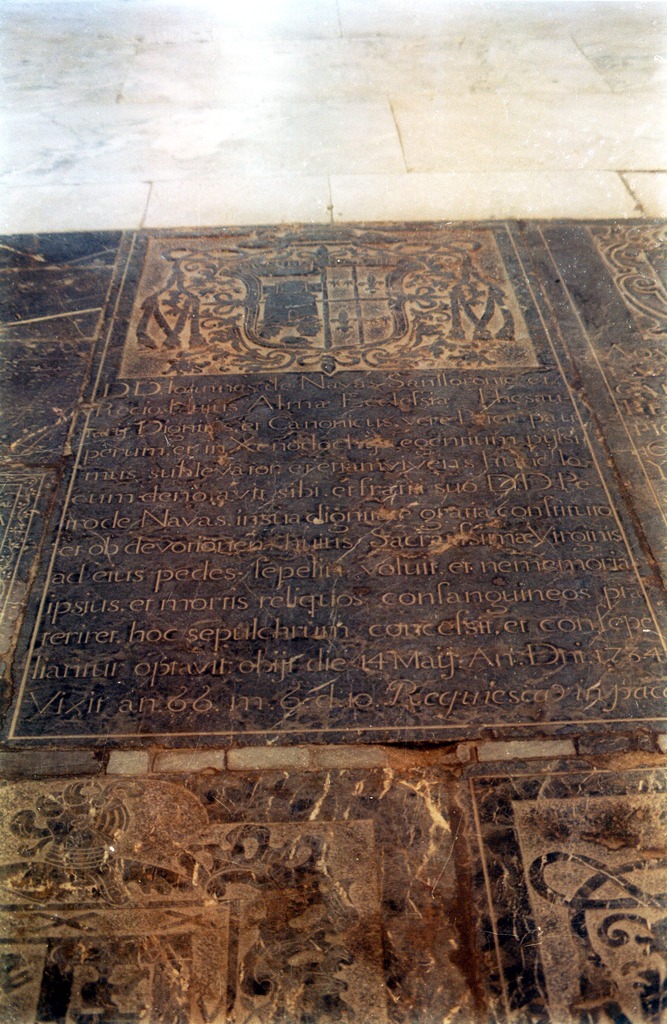 D D Ioannes de Navas Santlorente et
Rocio huius Almæ Ecclesiæ Thesau
Dignit. et Canonicus vere Pater pau
perum, et in Xenodochijs egentium
mus sublevator, et etiam
cum denotavit, sibi, et fratri suo D. D. Pe
tro de Navas, in sua dignit. e gratia constituto
et ob devotionem huius Sacratissimæ Virginis
ad eius pedes, sepeliri voluit, et ne memoria
ipsius, et mortis reliquos consanguineos præ
teriret, hoc sepulchrum concessit, et consepe
lliantur optavit, obijt die 14 Maij. An. Dni. 1734
Vixit an. 66. m. 6. d. 10. Requiescat in pace